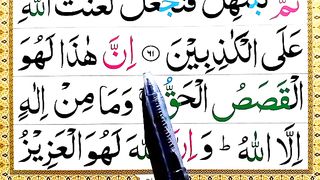 ثُمَّ نَبْتَهِلْ فَنَجْعَلْ لَّعْنَتَ اللّٰهِ
عَلَى الْكٰذِبِيْنَ ﴿۶۱﴾ اِنَّ هٰذَا لَهُوَ
الْقَصَصُ الْحَقُّ ۚ وَمَا مِنْ اِلٰهٍ
اِلَّا اللّٰهُ ؕ وَاِنَّ اللّٰهَ لَهُوَ الْعَزِيْزُ